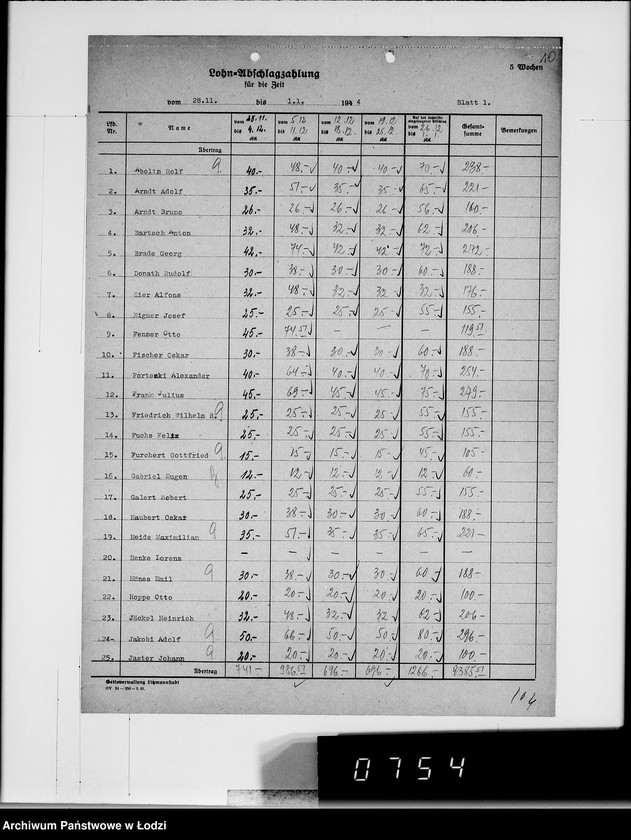 10
Lohn-Abschlagzahlung
5 Wochen
für die Zeit
vom 28.11. bis 1.1. 194 4 Blatt 1.
Lfd. Nr. Name vom 28.11. bis 4.12. RM vom 5.12. bis 11.12. RM vom 12.12. bis 18.12. RM vom 19.12. bis 25.12. RM vom 26.12. bis 1.1. RM Gesamt-summe Bemerkungen
Übertrag
1. Abolin Rolf 40.- 48.- 40.- 40.- 70.- 238.-
2. Arndt Adolf 35.- 51.- 35.- 35.- 65.- 221.-
3. Arndt Bruno 26.- 26.- 26.- 26.- 56.- 160.-
4. Bartsch Anton 32.- 48.- 32.- 32.- 62.- 206.-
5. Brade Georg 42.- 74.- 42.- 42.- 72.- 272.-
6. Donath Rudolf 30.- 38.- 30.- 30.- 60.- 188.-
7. Eier Alfons 32.- 48.- 32.- 32.- 32.- 176.-
8. Eigner Josef 25.- 25.- 25.- 25.- 55.- 155.-
9. Fenmer Otto 45.- 74.51 - - - 119.51
10. Fischer Oskar 30.- 38.- 30.- 30.- 60.- 188.-
11. Alexander 40.- 64.- 40.- 40.- 70.- 254.-
12. Frank Julius 45.- 69.- 45.- 45.- 75.- 279.-
13. Friedrich Wilhelm 25.- 25.- 25.- 25.- 55.- 155.-
14. Fuchs Felix 25.- 25.- 25.- 25.- 55.- 155.-
15. Furchert Gottfried 15.- 15.- 15.- 15.- 45.- 105.-
16. Gabriel Eugen 12.- 12.- 12.- 12.- 12.- 60.-
17. Galert Robert 25.- 25.- 25.- 25.- 55.- 155.-
18. Haubert Oskar 30.- 38.- 30.- 30.- 60.- 188.-
19. Heide Maximilian 35.- 51.- 35.- 35.- 65.- 221.-
20. Henke Lorenz - - - - - -
21. Hönes Emil 30.- 38.- 30.- 30.- 60.- 188.-
22. Hoppe Otto 20.- 20.- 20.- 20.- 20.- 100.-
23. Jäckel Heinrich 32.- 48.- 32.- 32.- 62.- 206.-
24. Jakobi Adolf 50.- 66.- 50.- 50.- 80.- 296.-
25. Jaster Johann 20.- 20.- 20.- 20.- 20.- 100.-
Übertrag 741.- 986.51 696.- 696.- 1266.- 4385.51
Gettoverwaltung Litzmannstadt
104
0754
Archiwum Państwowe w Łodzi